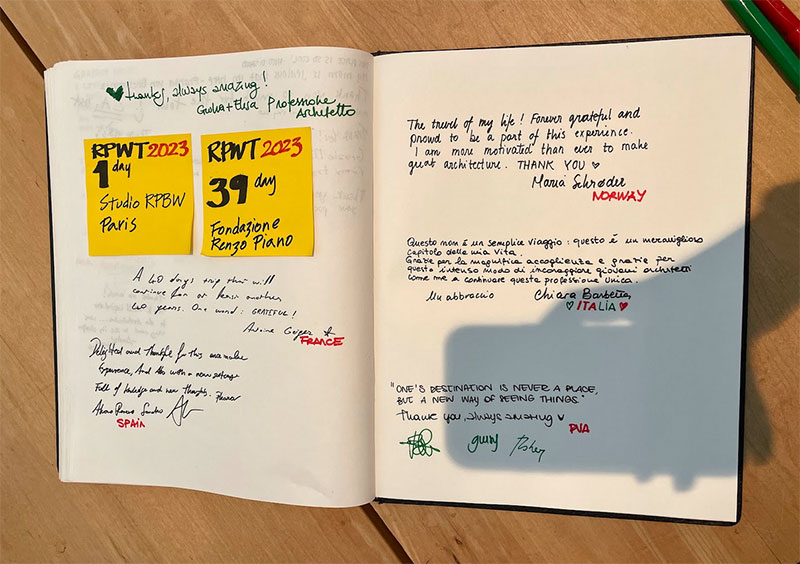 ♥ thanks, always amazing!
Giulia + Elisa Professione
Architetto
RPWT 2023
1 day
Studio RPBW
Paris
RPWT 2023
39 day
Fondazione
Renzo Piano
A 40 days trip that will
continue for at least another
40 years. One word: GRATEFUL!
Antoine
FRANCE
Delighted and thankful for this
Experience, And with a new
Full of knowledge and new thoughts.
SPAIN
The travel of my life! Forever grateful and
proud to be a part of this experience.
I am more motivated than ever to make
great architecture. THANK YOU ♡
Maria Schrøder
NORWAY
Questo non è un semplice viaggio: questo è un meraviglioso
capitolo della mia vita.
Grazie per la magnifica accoglienza e grazie per
questo intenso modo di incoraggiare giovani architetti
come me a continuare questa professione unica.
Un abbraccio Chiara Barbetta,
♡ ITALIA ♥
"ONE'S DESTINATION IS NEVER A PLACE,
BUT A NEW WAY OF SEEING THINGS."
Thank you, always amazing ♥
PVA